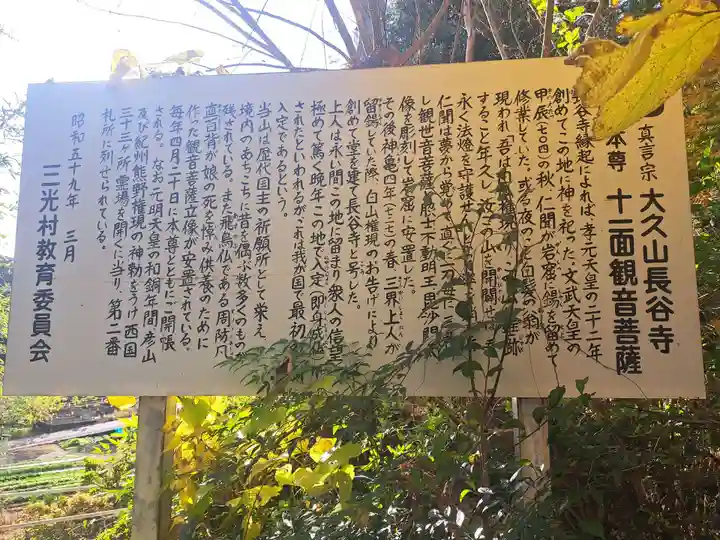 真言宗 大久山長谷寺
本尊 十一面観音菩薩
長谷寺縁起によれば、孝元天皇の二十二年
創めてこの地に神を祀った。文武天皇の
甲辰(七〇四)の秋、仁聞が岩窟に錫を留めて
修業していた。或る夜のこと白髪の翁が
現われ、吾は白山権現
すること年久し、汝この山を開闢せ
永く法燈を守護せん
仁聞は夢から覚めて直
し観世音菩薩、脇士不動明王、毘沙門
像を彫刻して岩窟に安置した。
その後神亀四年(七二七)の春、三界上人が
留錫していた際、白山権現のお告げにより
創めて堂を建て長谷寺と号した。
上人は永い間この地に留まり衆人の信望
極めて篤く晩年この地で入定(即身成仏)
されたといわれるが、これは我が国で最初
入定であるという。
当山は歴代国主の祈願所として栄え、
境内のあちこちに昔を偲ぶ数多くのもの
残されている。また飛鳥仏である周防凡
直百背が娘の死を悼み供養のために
作った観音菩薩立像が安置されている。
毎年四月二十日に本尊とともにご開帳
される。なお、元明天皇の和銅年間、彦山
及び紀州熊野権現の神勅をうけ西国
三十三ヶ所霊場を開くに当り、第二番
札所に列せられている。
昭和五十九年 三月
三光村教育委員会